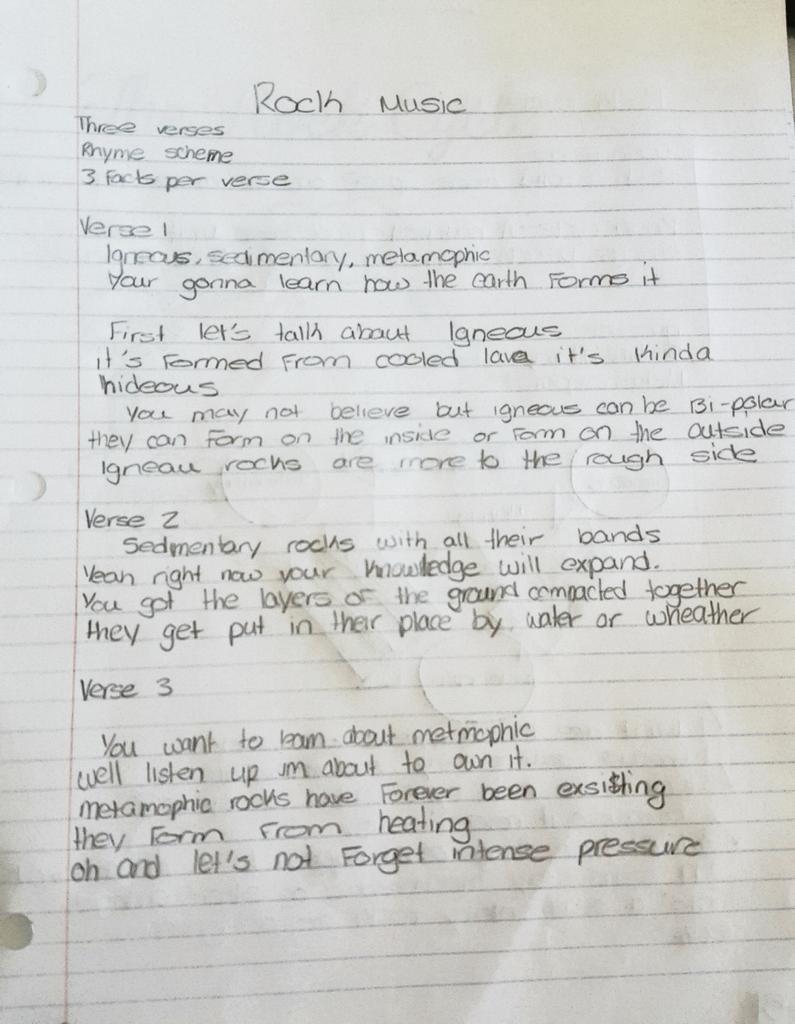 Rock Music
Three verses
Rhyme scheme
3 Facts per verse
Verse 1
Igneous, sedimentary, metamophic
Your gonna learn how the earth Forms it
First let's talk about Igneous
it's Formed From cooled lava it's kinda
hideous
You may not believe but igneous can be Bi-polar
they can Form on the inside or Form on the outside
Igneau rocks are more to the rough side
Verse 2
Sedmentary rocks with all their bands
Yeah right now your knowledge will expand.
You got the layers of the ground compacted together
they get put in their place by water or wheather
Verse 3
You want to learn about metmophic
well listen up im about to own it.
metamophic rocks have Forever been exsisting
they Form From heating
oh and let's not Forget intense pressure